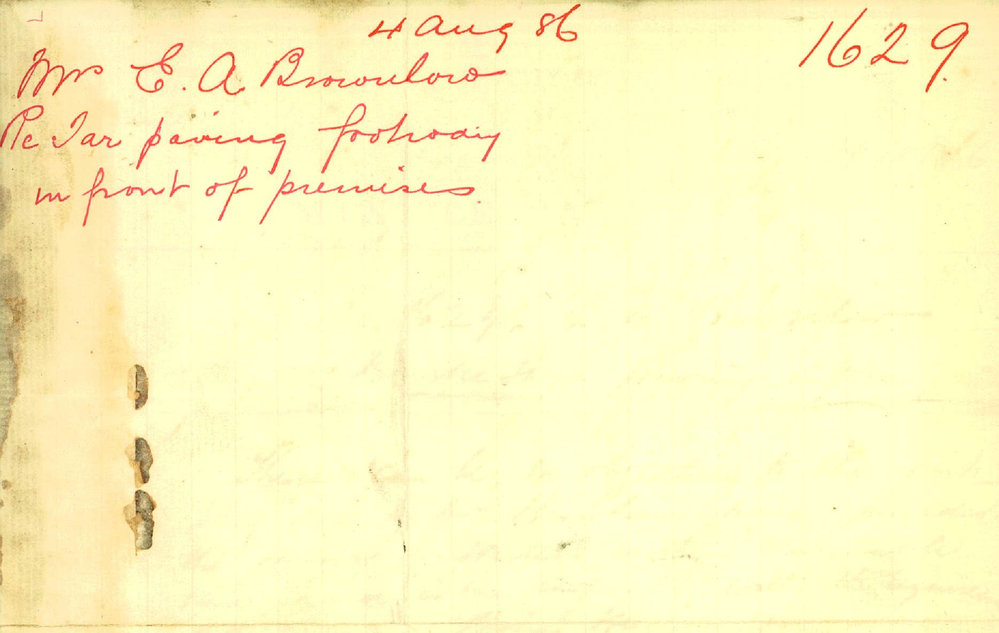 4 Aug 86
1629.
Mrs E. A Brownlow
Re Tar paving footway
in front of premises.